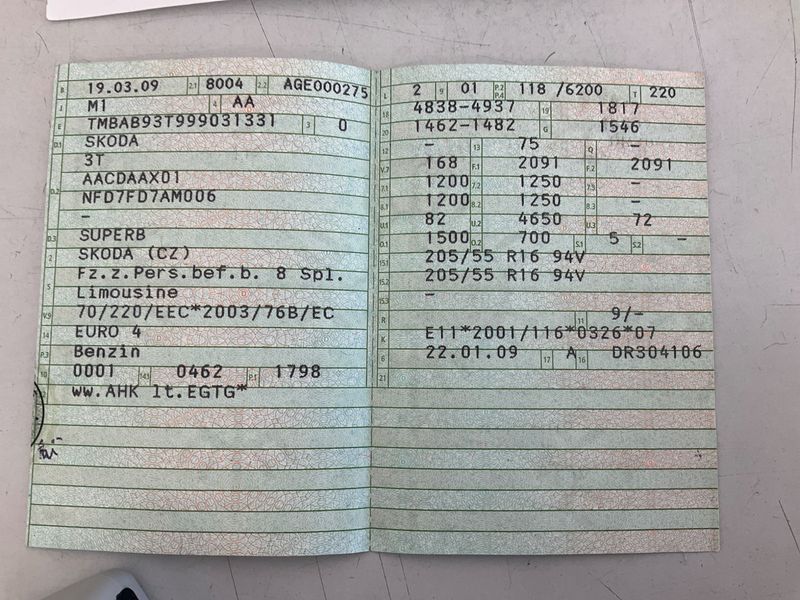 B 19.03.09 2.1 8004 2.2 AGE000275
J M1 4 AA
E TMBAB93T999031331 3 0
D.1 SKODA
3T
D.2 AACDAAX01
NFD7FD7AM006
–
D.3 SUPERB
2 SKODA (CZ)
5 Fz.z.Pers.bef.b. 8 Spl.
Limousine
V.9 70/220/EEC*2003/76B/EC
14 EURO 4
P.3 Benzin
10 0001 14.1 0462 P.1 1798
ww.AHK lt.EGTG*
L 2 9 01 P.2 P.4 118 /6200 T 220
18 4838-4937 19 1817
20 1462-1482 G 1546
12 – 13 75 Q –
V.7 168 F.1 2091 F.2 2091
7.1 1200 7.2 1250 7.3 –
8.1 1200 8.2 1250 8.3 –
U.1 82 U.2 4650 U.3 72
O.1 1500 O.2 700 S.1 5 S.2 –
15.1 205/55 R16 94V
15.2 205/55 R16 94V
15.3 –
R 11 9/–
K E11*2001/116*0326*07
6 22.01.09 17 A 16 DR304106
21